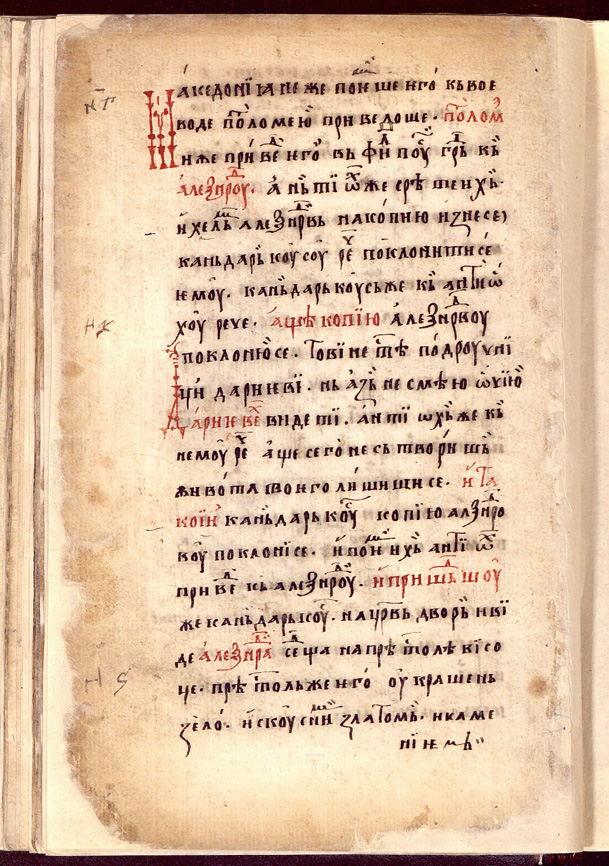 акедонїꙗ не же поѥмше ѥго къ вое
воде птоломею приведоше. птолом
иже приведе ѥго въ филипоу градь къ
алеѯандроу. антїѡхъ же срѣте ихъ.
и хелмъ алеѯандровь на копию изнесе)
каньдаркоусоу рече поклонити се
ѥмоу. каньдаркоусь же къ антїѡ
хоу рече. аще копїю алеѯандровоу
поклоню се. то бї не стѣ подроучнї
ци дариѥвї. нь азъ не смѣю ѡчїю
дариѥве видетї. антїѡхъ же къ
немоу рече аще сего не сътворишъ
живота твоѥго лишиши се. и та
ко каньдаркоу копїю алеѯандро
воу поклонї се. и поѥмъ ихъ антїѡх
приведе къ алеѯандроу. и пришьдшоу
же каньдаркоу. на царевь дворь и вї
де алеѯандра седеща на прѣстолѣ висо
це. прѣстоль же ѥго оукрашень
зело. искоусним златомъ. и каме
нїѥмъ